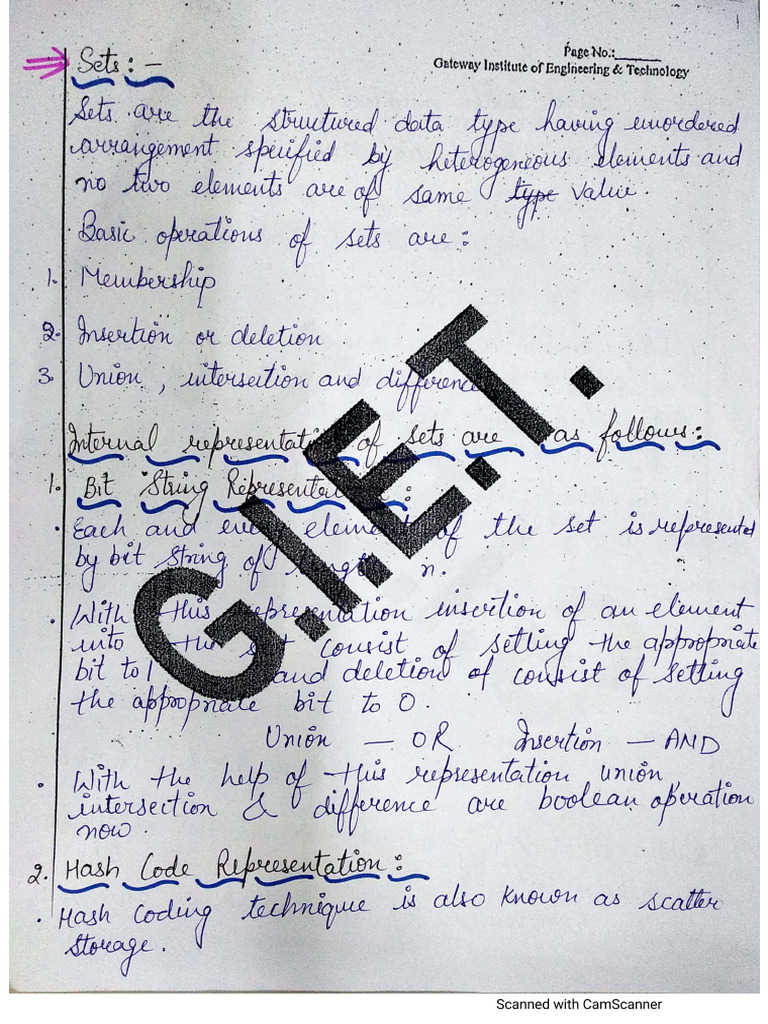 Page No.:______
Gateway Institute of Engineering & Technology
⇒ Sets : -
Sets are the structured data type having unordered
arrangement specified by heterogeneous elements and
no two elements are of same type value.
Basic operations of sets are :
1. Membership
2. Insertion or deletion
3. Union , intersection and difference
Internal representati of sets are as follows :
1. Bit String Representa :
. Each and eve elemen of the set is represented
by bit string of lengt n.
. With this representation insertion of an element
into the set consist of setting the appropriate
bit to 1 and deletion of consist of setting
the appropriate bit to 0.
Union — OR Insertion — AND
. With the help of this representation union,
intersection & difference are boolean operation
now.
2. Hash Code Representation :
. Hash Coding technique is also known as scatter
storage.
G.I.E.T.
Scanned with CamScanner